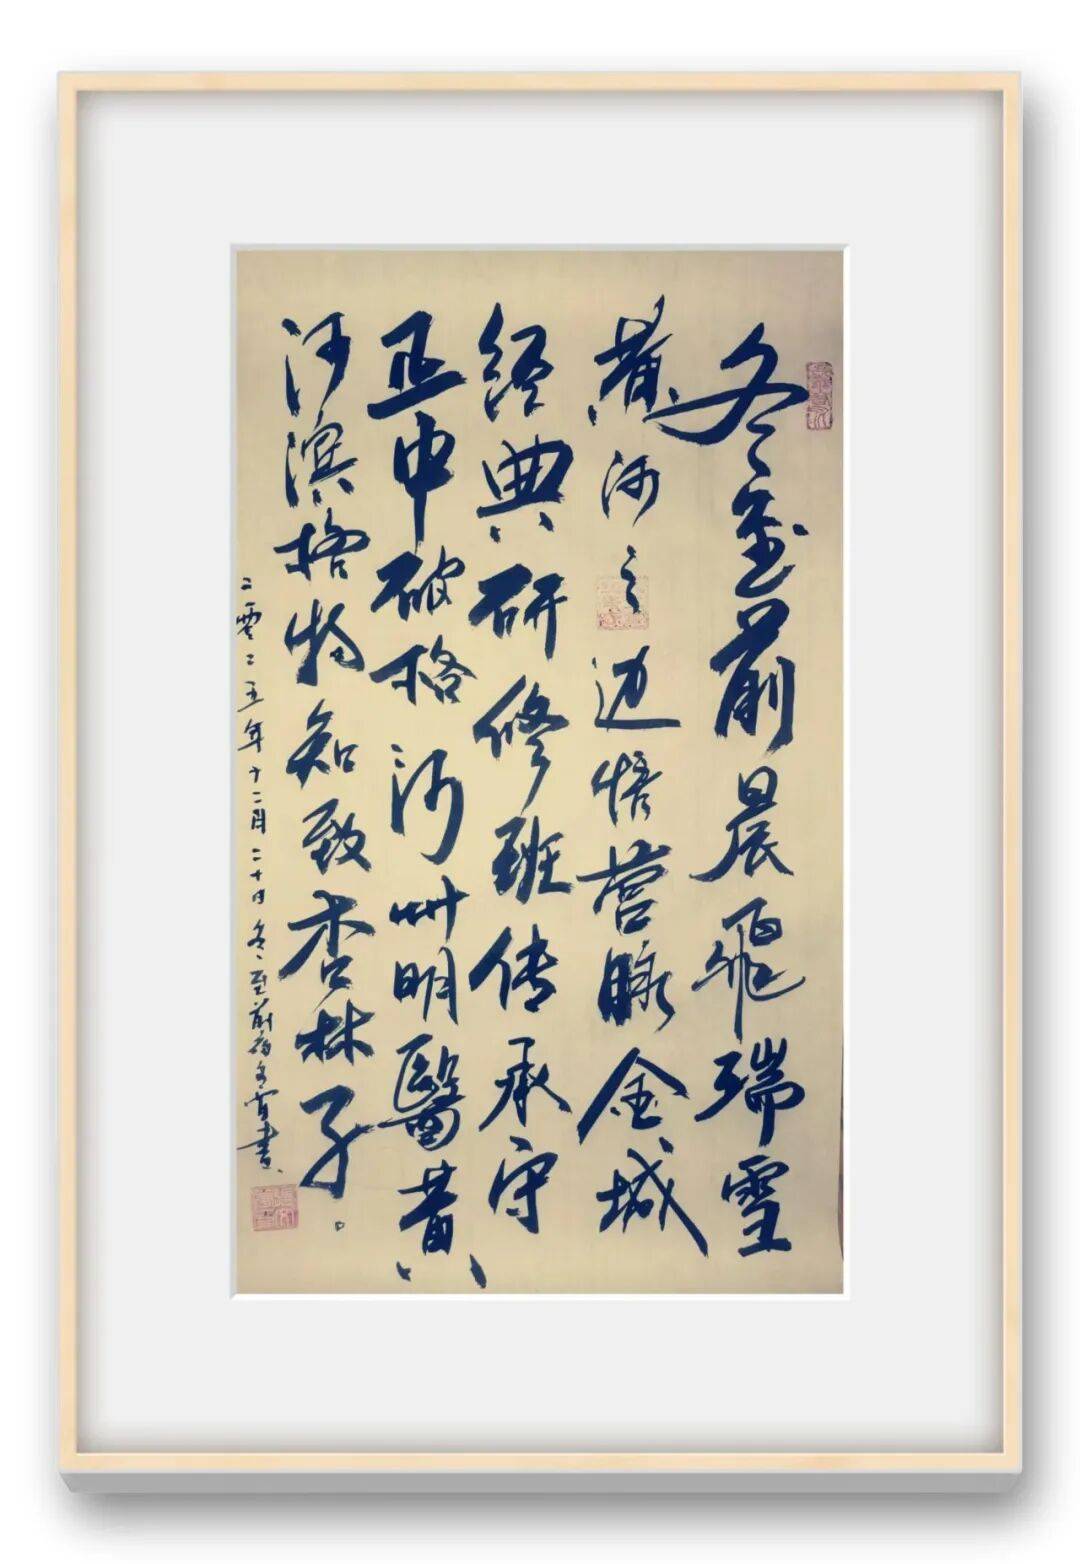 冬至前晨飛瑞雪
黄河之边悟营脉金城
经典研修班传承守
正申破格河州明醫黄
河滨格物知致杏林子。
二零二五年十二月二十日冬至前書